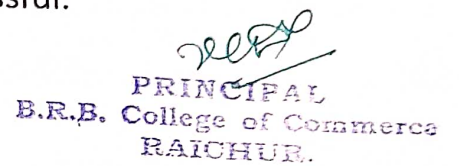 PRINCIPAL
B.R.B. College of Commerce
RAICHUR.